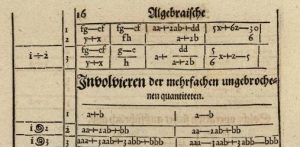 16 Algebraische
1 fg—cf fg—cf aa+2ab+dd 5x+6z—30
2 y+x fh a+2b 6
i÷2 3 fg—cf g—c a+ dd 5
y+x h a+2b 6 x+z—5
Involvieren der mehrfachen ungebroche-
nen quantiteten.
1 a+b a—b
1 2 2 aa+2ab+bb aa—2ab+bb
1 3 3 aaa+3aab+3abb+bbb aaa—3aab+3abb—bbb